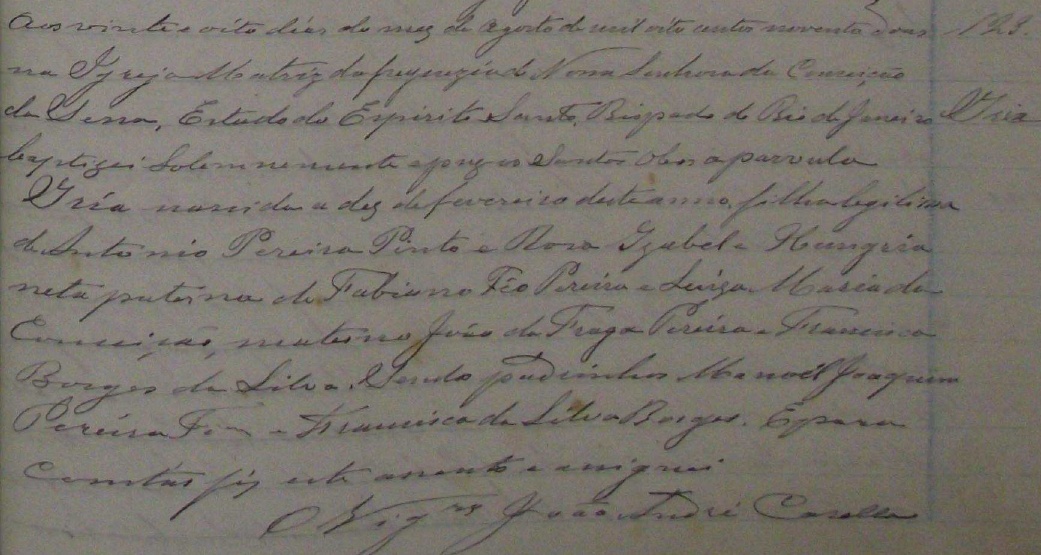 Aos vinte e oito dias do mez de Agosto de mil oito centos noventa e dois 123.
na Igreja Matriz da freguezia de Nossa Senhora da Conceição
da Serra, Estado do Espirito Santo, Bispado do Rio de Janeiro Iria
baptizei Solemnemente e puz os Santos Oleos a parvula
Iria nascida a dez de fevereiro deste anno, filha legitima
de Antonio Pereira Pinto e Rosa Izabel e Hungria
neta paterna de Fabiano Féo Pereira e Luiza Maria da
Conceição, materno João da Fraga Pereira e Francisca
Borges da Silva. Sendo padrinhos Manoel Joaquim
Pereira e Francisca da Silva Borges. E para
Constar fiz este assento e assignei
O Vigro João André Casella